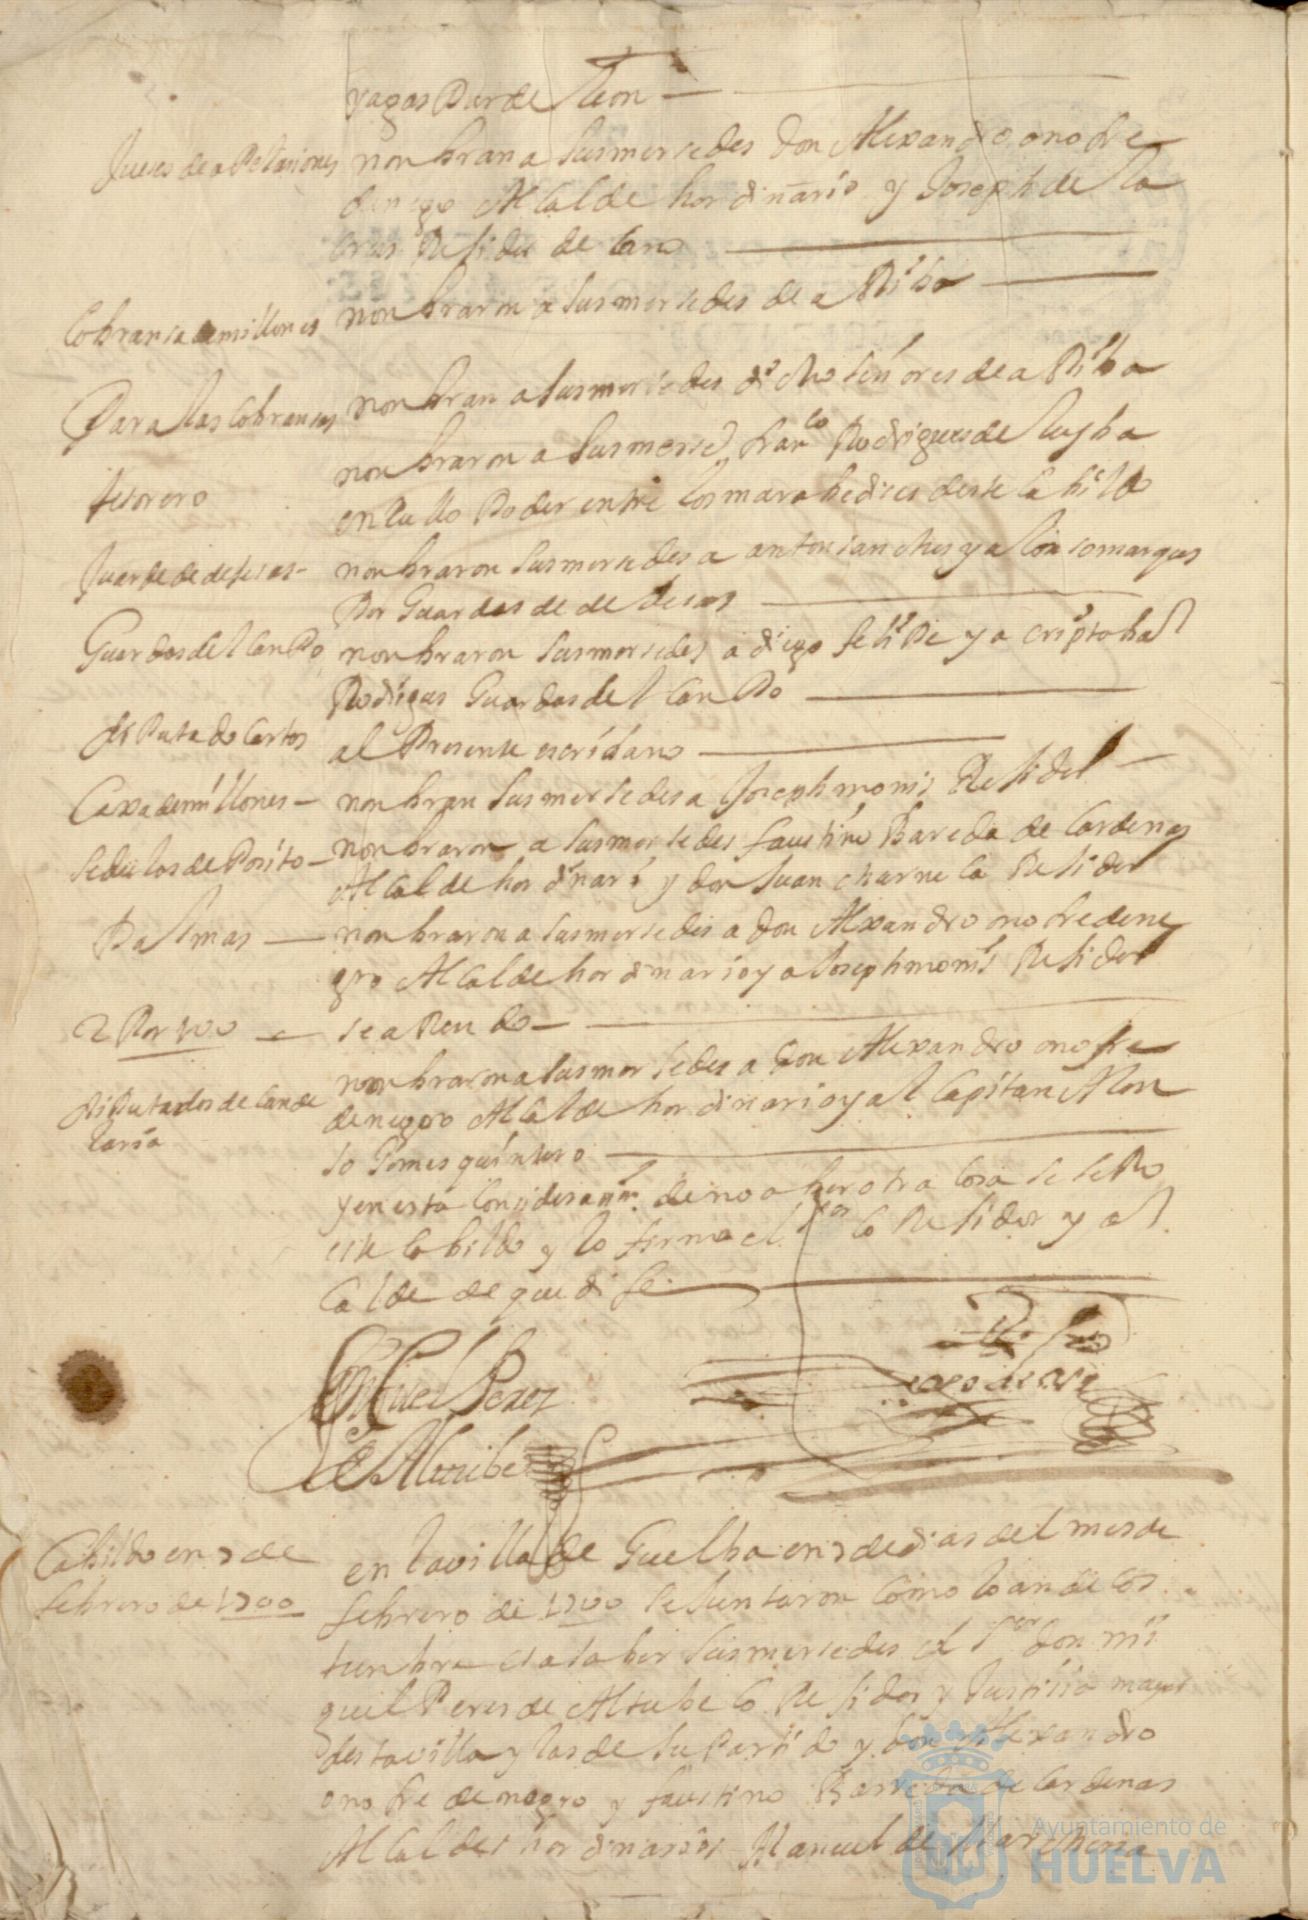 yagas Pur de leon
Jueses de apelasiones nonbran a sus mersedes don Alexandro onofre
de negro Alcalde hordinario y Joseph de la
crus Residor de cano
Cobransa de millones nonbraron a sus mersedes de aRiba
Para las Cobransas nonbran a sus mersedes dicho señores de aRiba
tesorero nonbraron a su mersed franco Rodrigues de
en Cullo Poder entre los marabedises deste Cabildo
Guarda de desas nonbraron sus mersedes a anton sanches y a alonso marques
Por Guardas de desas
Guardas del Canpo nonbraron sus mersedes a diego felipe y a criptobal
Rodrigues Guardas del Canpo
diPutado Cartas al Presente escribano
Caxa de millones nonbran sus mersedes a Joseph monis Residor
sedulas de Posito nonbraron a sus mersedes faustino Bareda de Cardenas
Alcalde hordinari y don Juan charneca Residor
Palmas nonbraron a sus mersedes a don Alexandro onofre dene
gro Alcalde hordinario y a Joseph monis Residor
2 Por 100 se aRendo
diPutados de Cande
laria
nonbraron a sus mersedes a don Alexandro onofre
de negro Alcalde hordinario y al Capitan Alon
so Gomes quintero
y en esta Considerasion de no aber otra Cosa se serro
este Cabildo y lo firmo el sor CoResidor y al
Calde de que di fe
Miguel Perez
de Altube
Cabildo en 7 de
febrero de 1700
en la villa de Guelba en 7 de dias del mes de
febrero de 1700 se Juntaron Como lo an de Cos
tunbre es a saber sus mersedes el sor don mi
guel Peres de Altube CoResidor y Justisia mayor
desta villa y las de su Partido y don Alexandro
onofre de negro y faustino Barreda de Cardenas
Alcaldes hordinarios Manuel de Marchena
Ayuntamiento de
HUELVA